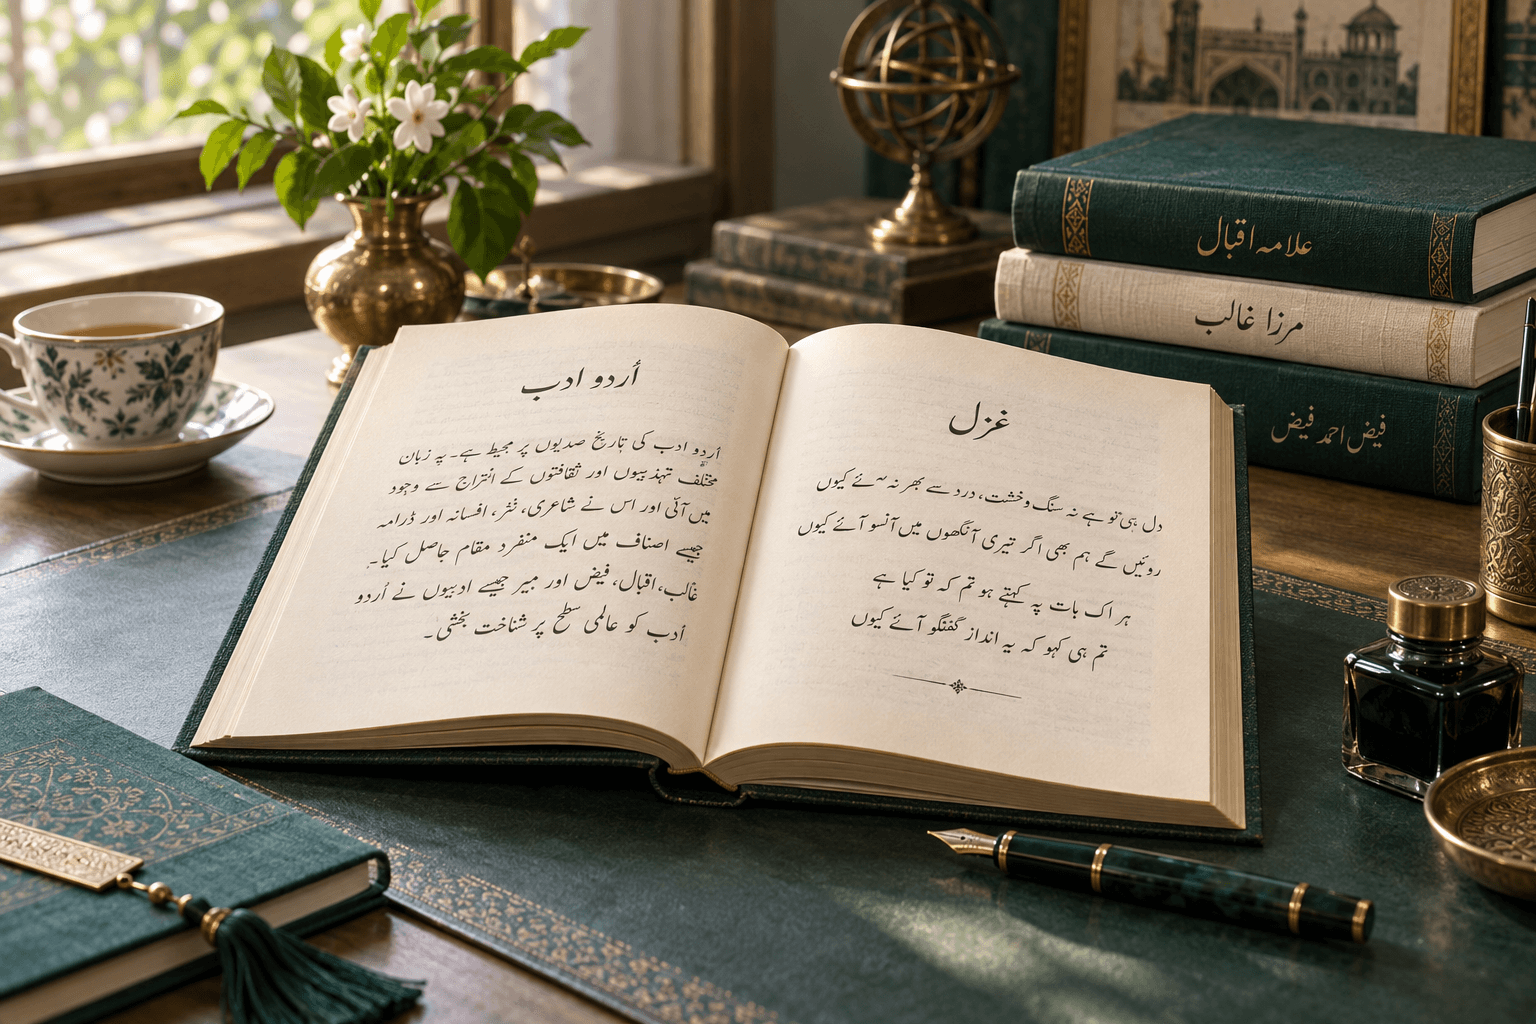 اُردو ادب
اُردو ادب کی تاریخ صدیوں پر محیط ہے۔ یہ زبان
مختلف تہذیبوں اور ثقافتوں کے امتزاج سے وجود
میں آئی اور اس نے شاعری، نثر، افسانہ اور ڈرامہ
جیسے اصناف میں ایک منفرد مقام حاصل کیا۔
غالب، اقبال، فیض اور میر جیسے ادیبوں نے اُردو
ادب کو عالمی سطح پر شناخت بخشی۔
غزل
دل ہی تو ہے نہ سنگ و خشت، درد سے بھر نہ آئے کیوں
روئیں گے ہم بھی اگر تیری آنکھوں میں آنسو آئے کیوں
ہر اک بات پہ کہتے ہو تم کہ تو کیا ہے
تم ہی کہو کہ یہ انداز گفتگو آئے کیوں
علامہ اقبال
مرزا غالب
فیض احمد فیض